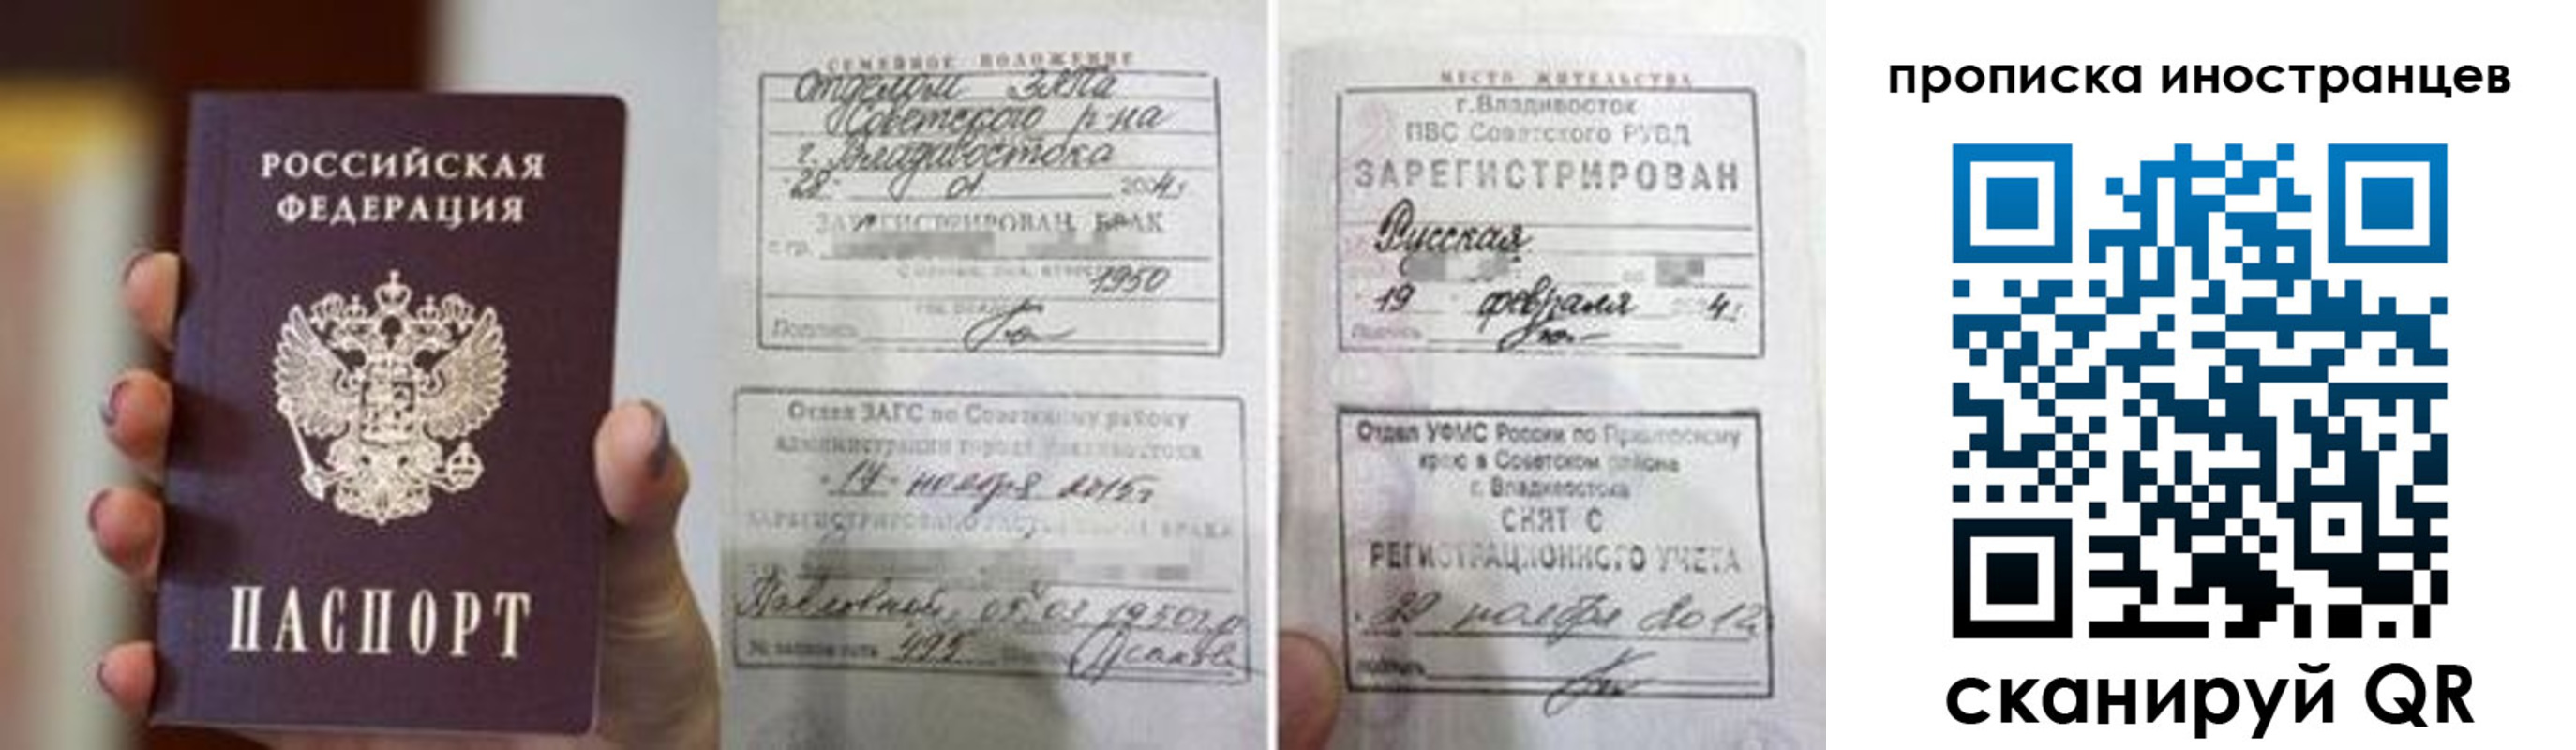 РОССИЙСКАЯ
ФЕДЕРАЦИЯ
ПАСПОРТ
СЕМЕЙНОЕ ПОЛОЖЕНИЕ
Отделом ЗАГСа
Советского р-на
г. Владивостока
"28" 01 2004 г.
ЗАРЕГИСТРИРОВАН БРАК
с гр.
1950
Подпись
Отдел ЗАГС по Советскому району
администрации города Владивостока
"17" ноября 2015 г.
ЗАРЕГИСТРИРОВАНО РАСТОРЖЕНИЕ БРАКА
Павловной, 05.03.1950 г.р.
№ записи акта 495
МЕСТО ЖИТЕЛЬСТВА
г.Владивосток
ПВС Советского РУВД
ЗАРЕГИСТРИРОВАН
Русская
19 февраля 4г.
Подпись
Отдел УФМС России по Приморскому
краю в Советском районе
г. Владивостока
СНЯТ С
РЕГИСТРАЦИОННОГО УЧЕТА
ноября 2012
подпись
прописка иностранцев
сканируй QR